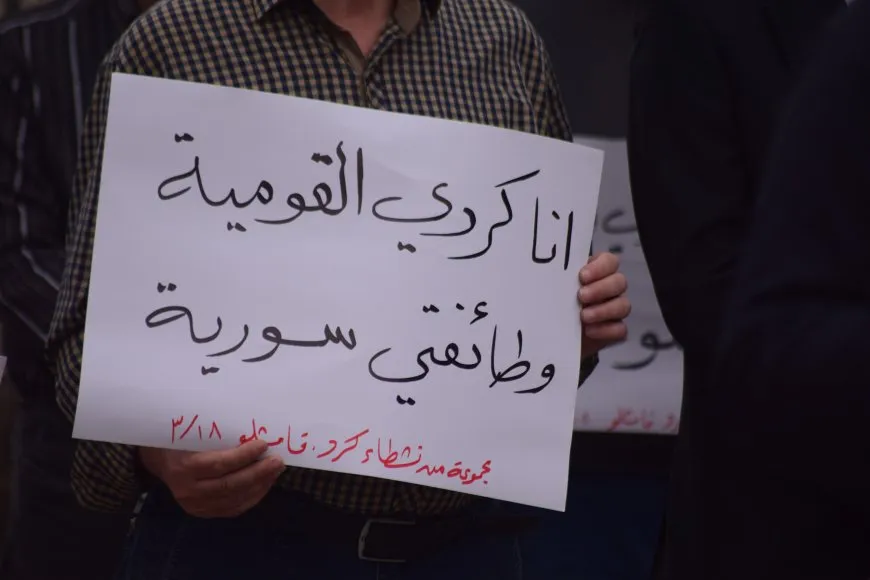 انا كردي القومية
وطائفتي سورية
مجموعة من نشطاء كرد . قامشلو ٣/١٨